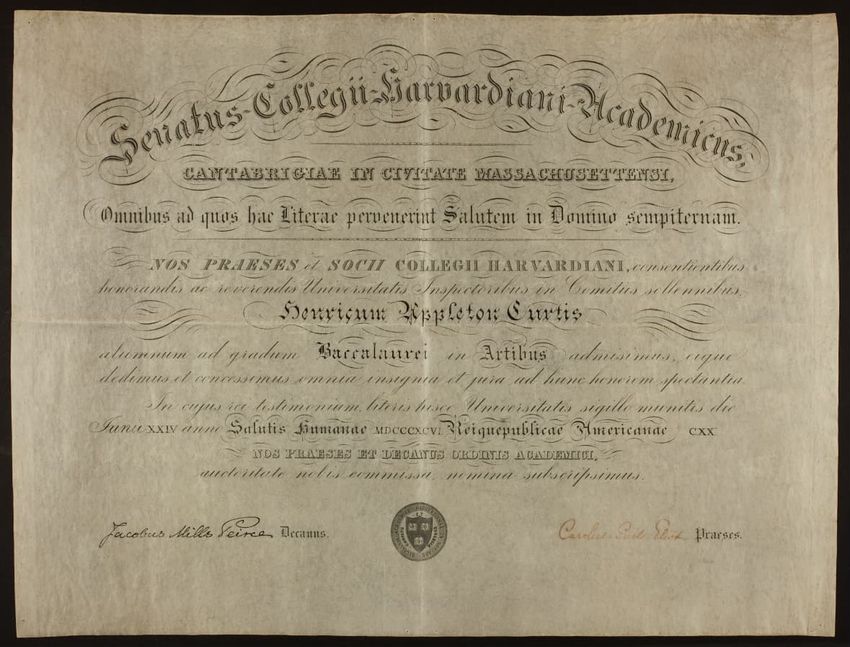 Senatus-Collegii-Harvardiani-Academicus,
CANTABRIGIAE IN CIVITATE MASSACHUSETTENSI,
Omnibus ad quos hae Literae pervenerint Salutem in Domino sempiternam.
NOS PRAESES et SOCII COLLEGII HARVARDIANI, consentientibus
honorandis ac reverendis Universitatis Inspectoribus in Comitiis sollennibus,
Henricum Appleton Curtis
alumnum ad gradum Baccalaurei in Artibus admisimus, eique
dedimus et concessimus omnia insignia et jura ad hunc honorem spectantia.
In cujus rei testimonium, literis hisce Universitatis sigillo munitis die
Junii XXIV anno Salutis Humanae MDCCCXCVI Reique publicae Americanae CXX
NOS PRAESES ET DECANUS ORDINIS ACADEMICI,
auctoritate nobis commissa, nomina subscripsimus.
Jacobus Mills Peirce Decanus.
Carolus Praeses.